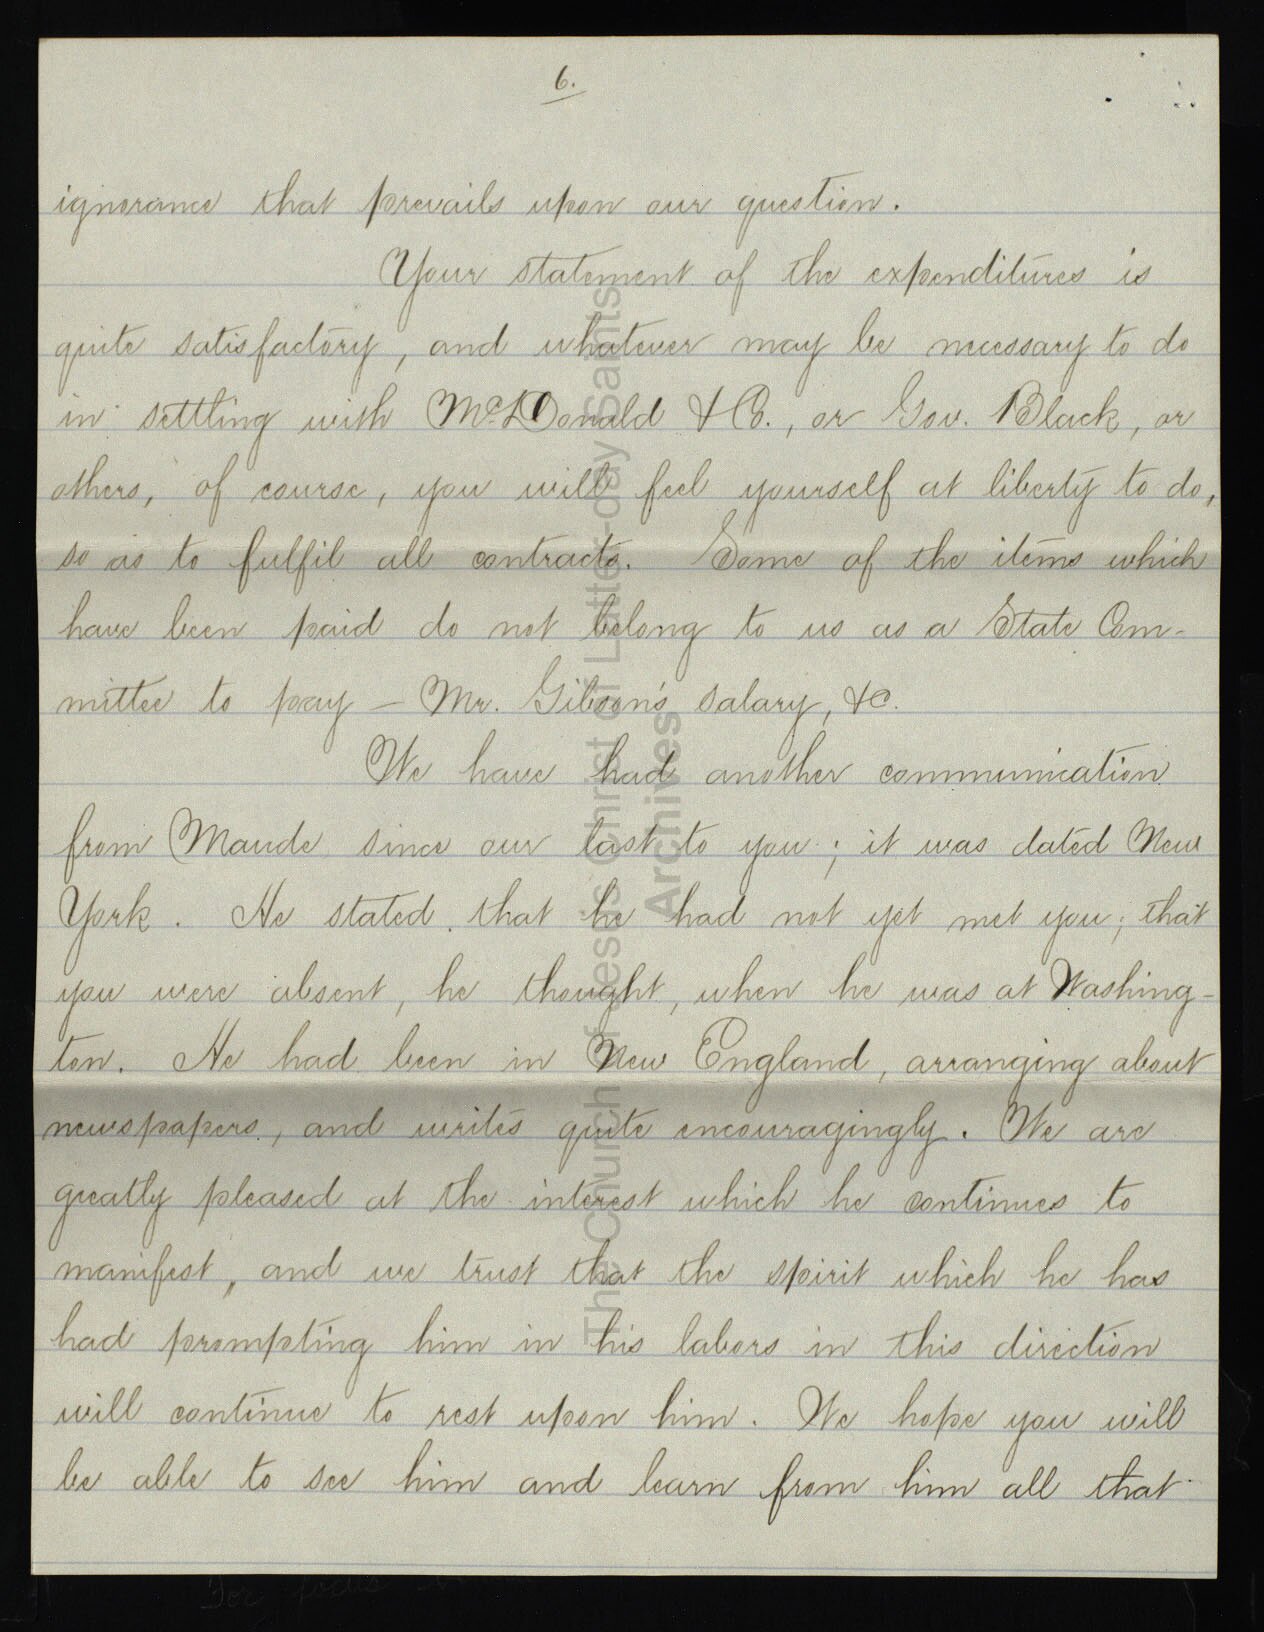 6.
ignorance that prevails upon our question.
Your statement of the expenditures is
quite satisfactory, and whatever may be necessary to do
in settling with McDonald & Co., or Gov. Black, or
others, of course, you will feel yourself at liberty to do,
so as to fulfil all contracts. Some of the items which
have been paid do not belong to us as a State Com-
mittee to pay — Mr. Gibson's salary, &c.
We have had another communication
from Maude since our last to you; it was dated New
York. He stated that he had not yet met you; that
you were absent, he thought, when he was at Washing-
ton. He had been in New England, arranging about
newspapers, and writes quite encouragingly. We are
greatly pleased at the interest which he continues to
manifest, and we trust that the spirit which he has
had prompting him in his labors in this direction
will continue to rest upon him. We hope you will
be able to see him and learn from him all that
The Church of Jesus Christ of Latter-day Saints
Archives